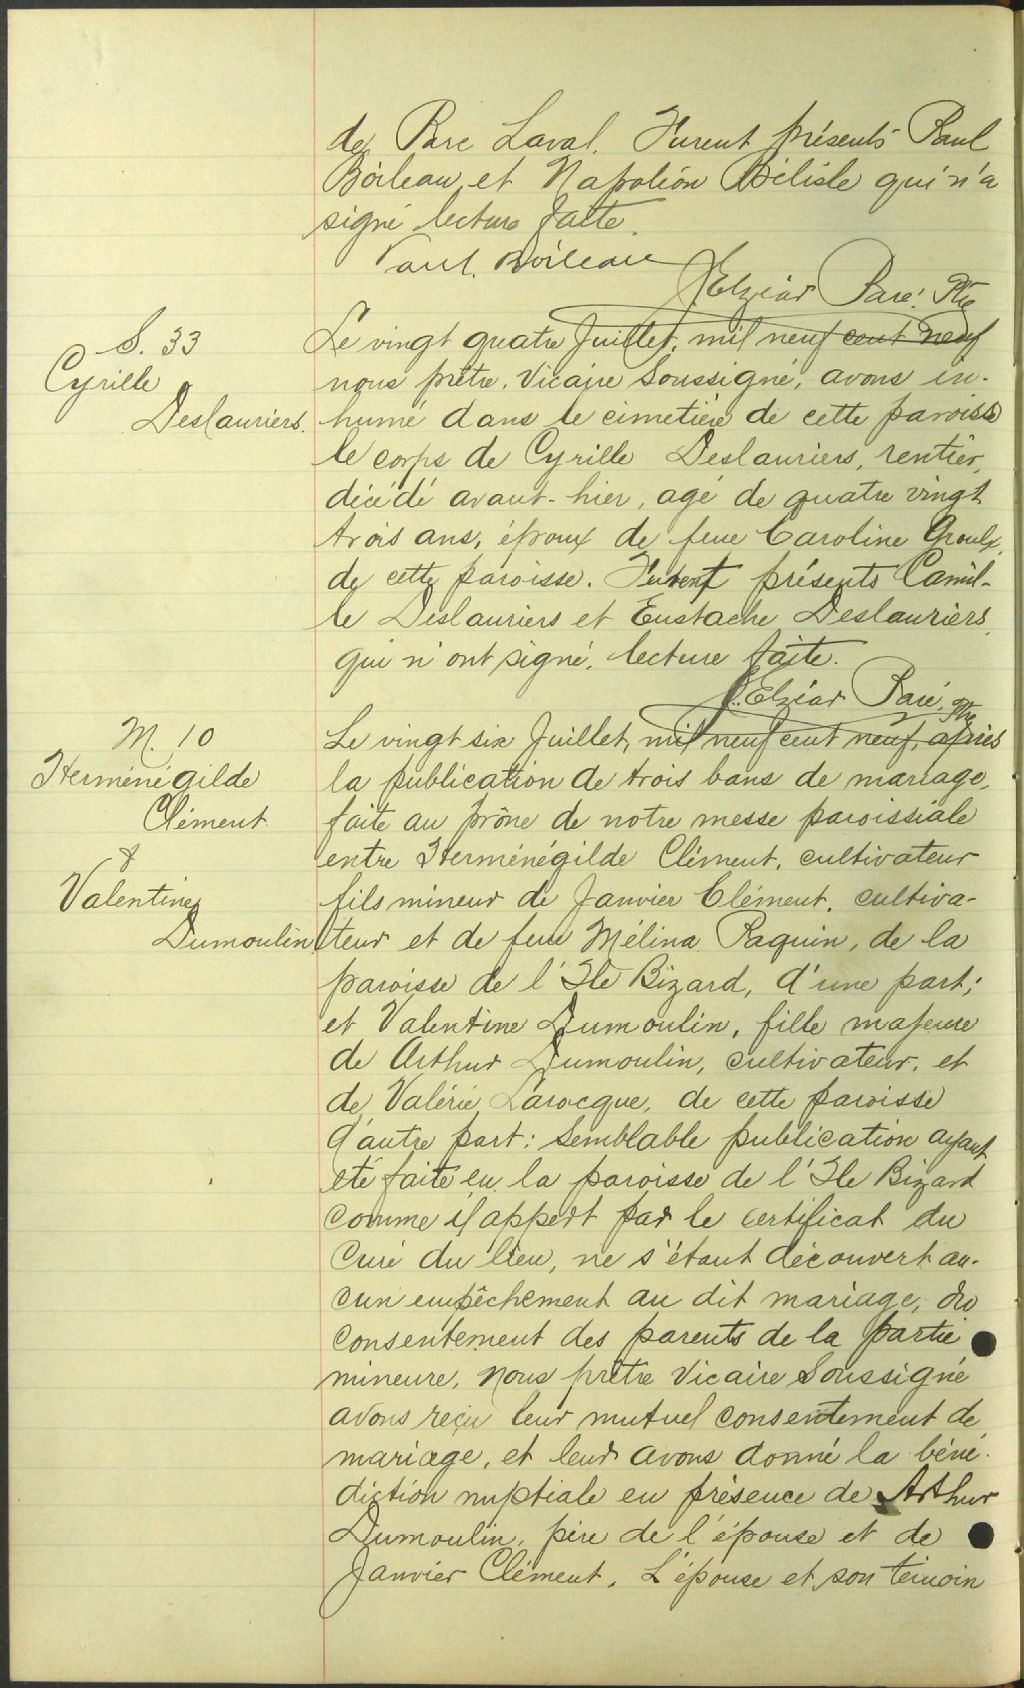 de Parc Laval. Furent présents Paul
Boileau et Napoléon Bélisle qui n'a
signé lecture faite.
Paul. Boileau
J. Elzéar Paré. Ptre
S. 33
Cyrille
Deslauriers.
Le vingt quatre Juillet, mil neuf cent neuf
nous prêtre, Vicaire Soussigné, avons in-
humé dans le cimetière de cette paroisse
le corps de Cyrille Deslauriers, rentier,
décédé avant-hier, agé de quatre vingt
trois ans, époux de feue Caroline Groulx,
de cette paroisse. Furent présents Camil-
le Deslauriers et Eustache Deslauriers,
qui n'ont signé, lecture faite.
J. Elzéar Paré, Ptre
M. 10
Herménégilde
Clément
&
Valentine
Dumoulin
Le vingt six Juillet, mil neuf cent neuf, après
la publication de trois bans de mariage,
faite au prône de notre messe paroissiale
entre Herménégilde Clément, cultivateur
fils mineur de Janvier Clément, cultiva-
teur et de feue Mélina Paquin, de la
paroisse de l'Ile Bizard, d'une part;
et Valentine Dumoulin, fille majeure
de Arthur Dumoulin, cultivateur, et
de Valérie Larocque, de cette paroisse
d'autre part: Semblable publication ayant
été faite en la paroisse de l'Ile Bizard
comme il appert par le certificat du
Curé du lieu, ne s'étant découvert au-
cun empêchement au dit mariage, du
consentement des parents de la partie
mineure, Nous prêtre Vicaire Soussigné
avons reçu leur mutuel consentement de
mariage, et leur avons donné la béné-
diction nuptiale en présence de Arthur
Dumoulin, père de l'épouse et de
Janvier Clément. L'épouse et son témoin